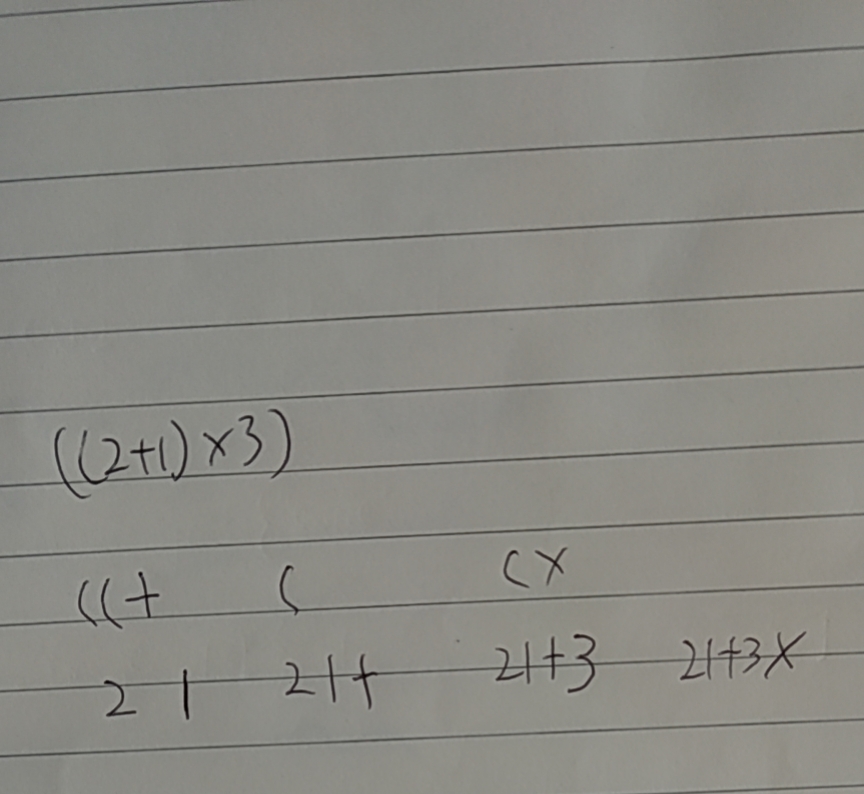 ((2+1)×3)
((+ ( (×
2 1 21+ 21+3 21+3×